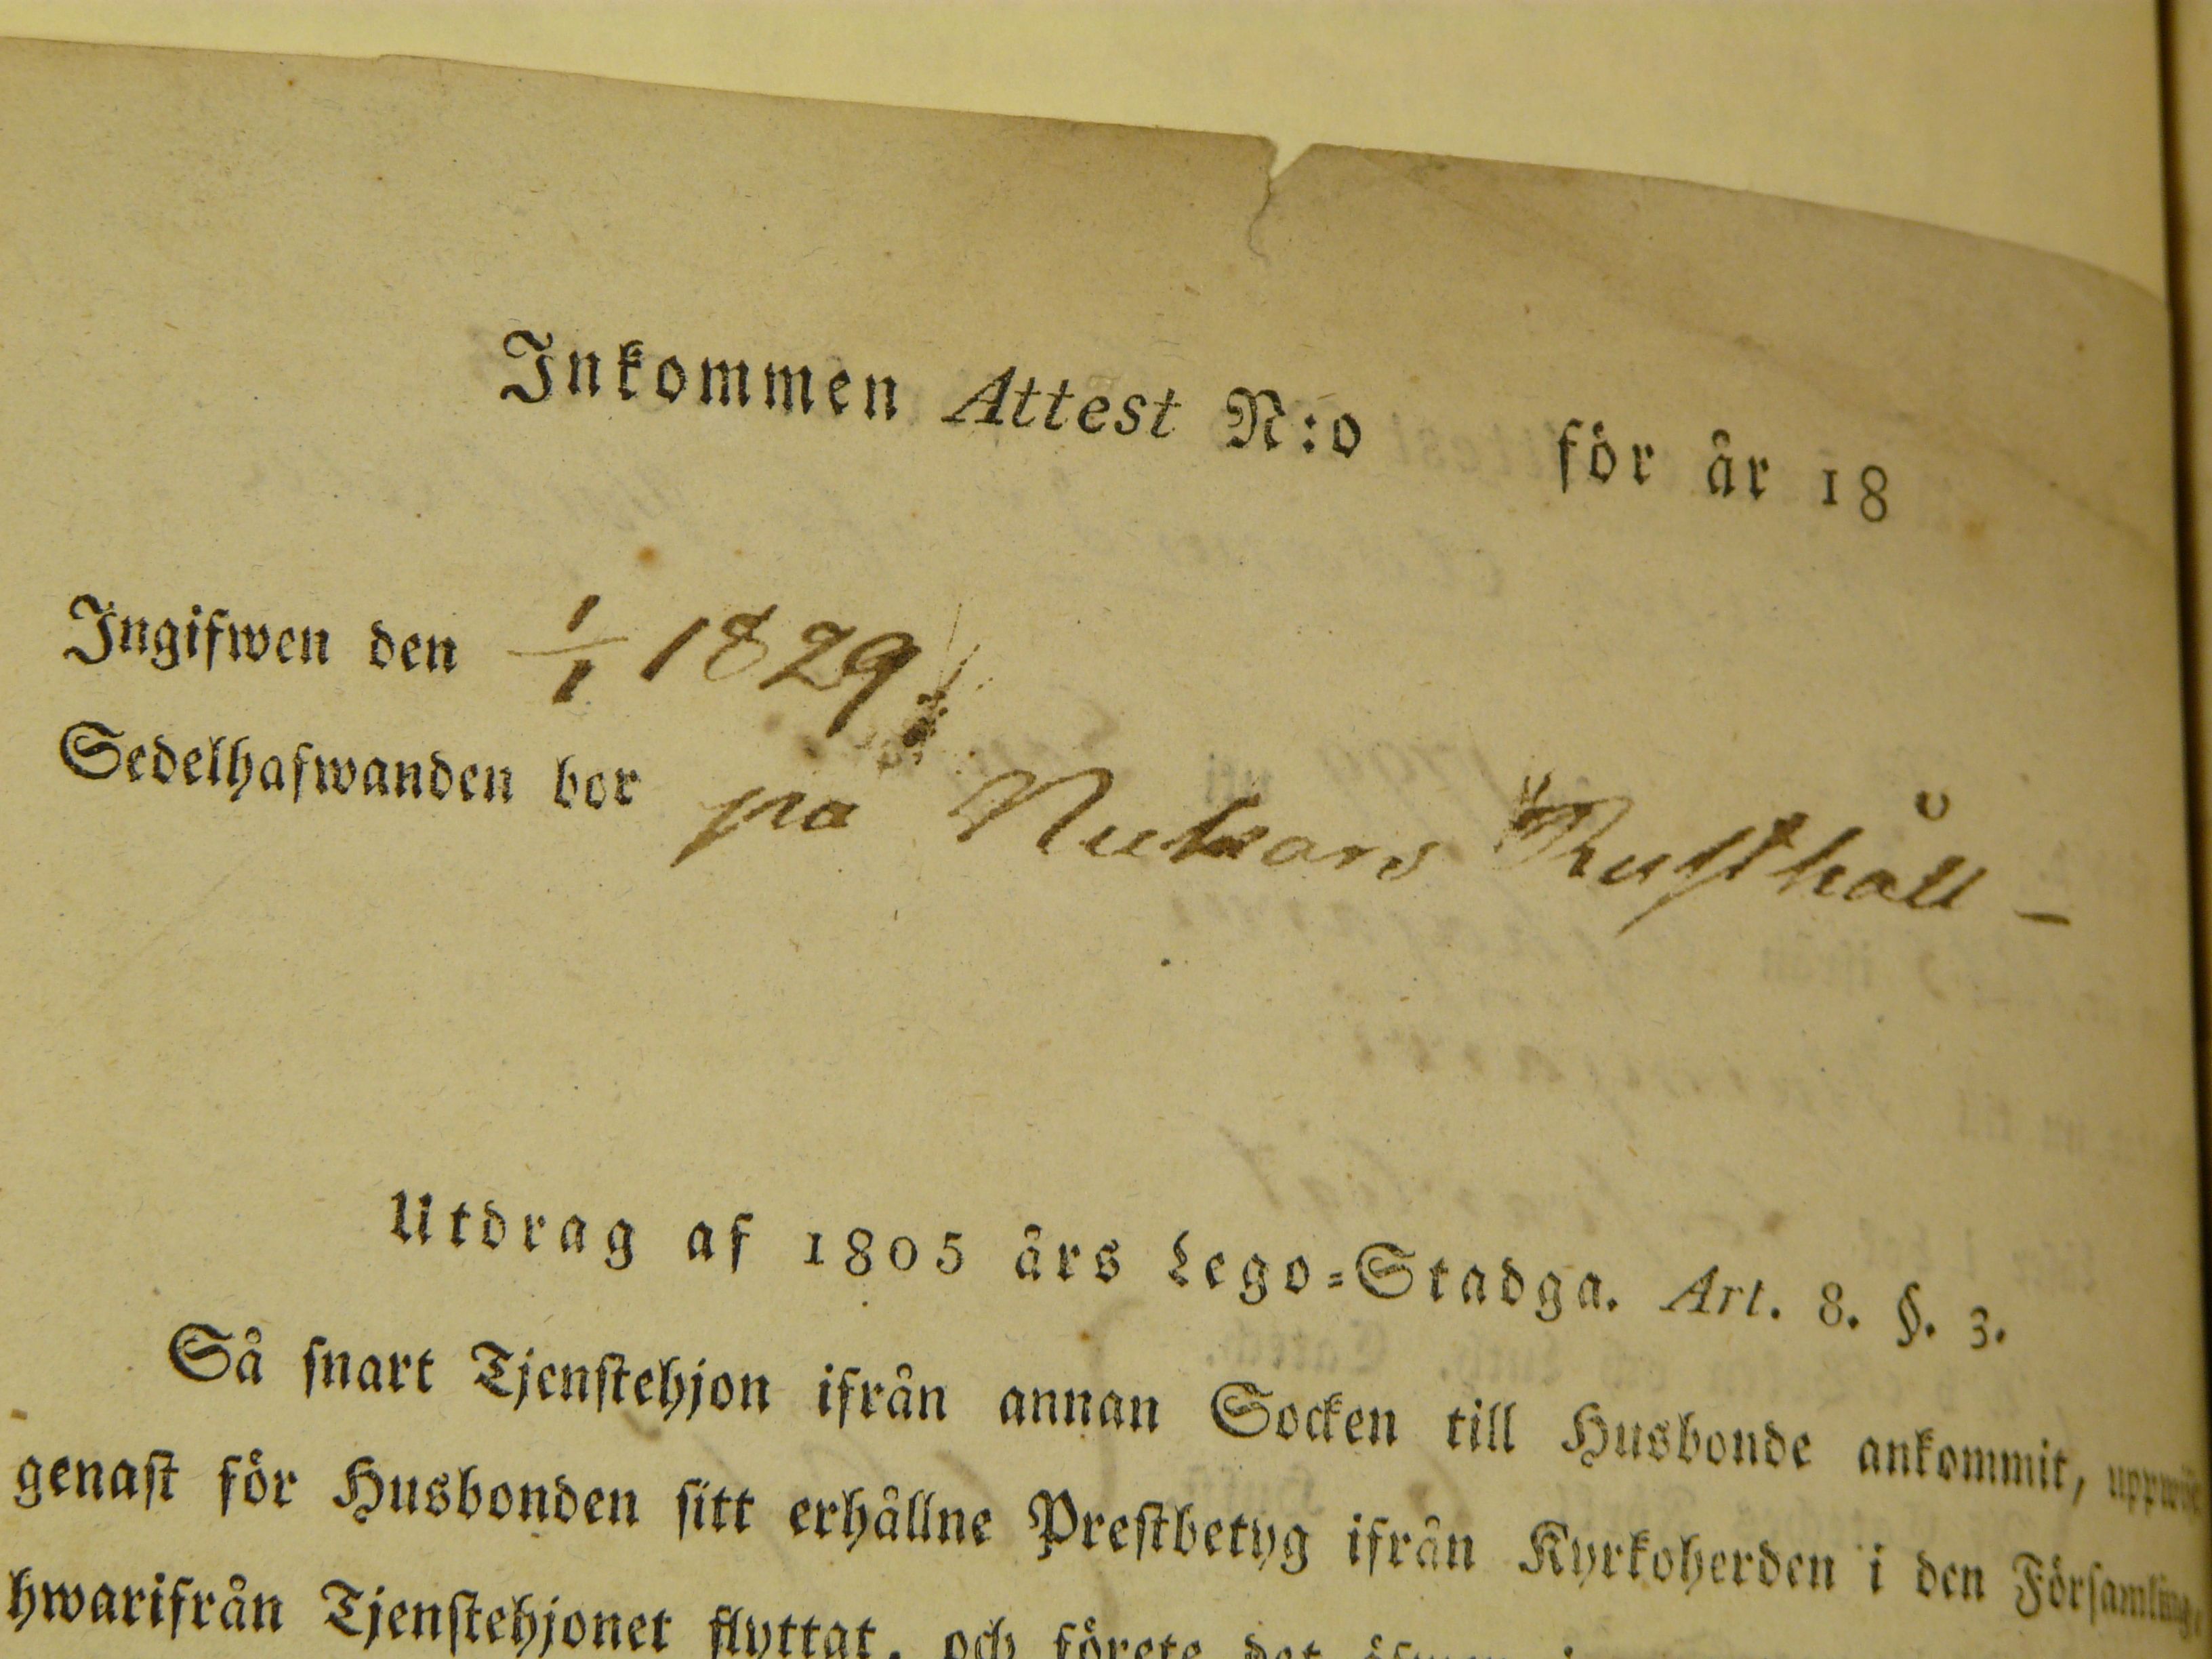 Inkommen Attest N:o för år 18
Ingifwen den 1/1 1829
Sedelhafwanden bor på Rusthåll –
Utdrag af 1805 års Lego-Stadga. Art. 8. §. 3.
Så snart Tjenstehjon ifrån annan Socken till Husbonde ankommit,
genast för Husbonden sitt erhållne Prestbetyg ifrån Kyrkoherden i den Församling,
hwarifrån Tjenstehjonet flyttat, och förete det